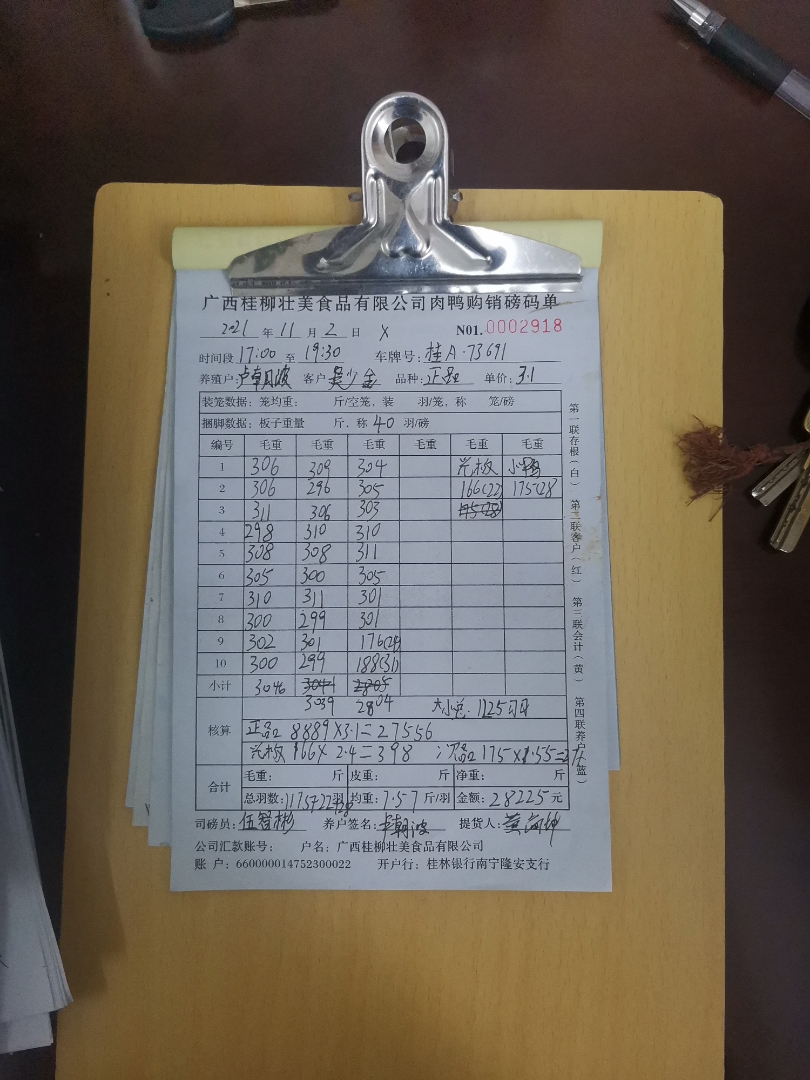 广西桂柳壮美食品有限公司肉鸭购销磅码单
2021 年 11 月 2 日 X N01.0002918
时间段 17:00 至 19:30 车牌号: 桂A·73691
养殖户: 卢朝波 客户 吴少金 品种: 正品 单价: 3.1
装笼数据: 笼均重: 斤/空笼、装 羽/笼、称 笼/磅
捆脚数据: 板子重量 斤，称 40 羽/磅
编号 毛重 毛重 毛重 毛重 毛重 毛重
1 306 309 304 小鸭
2 306 296 305 166(22) 175(28
3 311 306 303 175(28)
4 298 310 310
5 308 308 311
6 305 300 305
7 310 311 301
8 300 299 301
9 302 301 176(24)
10 300 299 188(31)
小计 3046
3039 2804
核算 正品 8889×3.1=27556
166×2.4=398 175×1.55=271
合计 毛重: 斤 皮重: 斤 净重: 斤
总羽数: 羽 均重: 7.57 斤/羽 金额: 28225 元
司磅员: 伍智彬 养户签名: 卢朝波 提货人:
公司汇款账号: 户名: 广西桂柳壮美食品有限公司
账 户: 660000014752300022 开户行: 桂林银行南宁隆安支行
第一联存根(白) 第二联客户(红) 第三联会计(黄) 第四联养户(蓝)